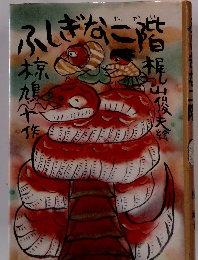 ふしぎな二階
梶山俊夫絵
椋鳩十作